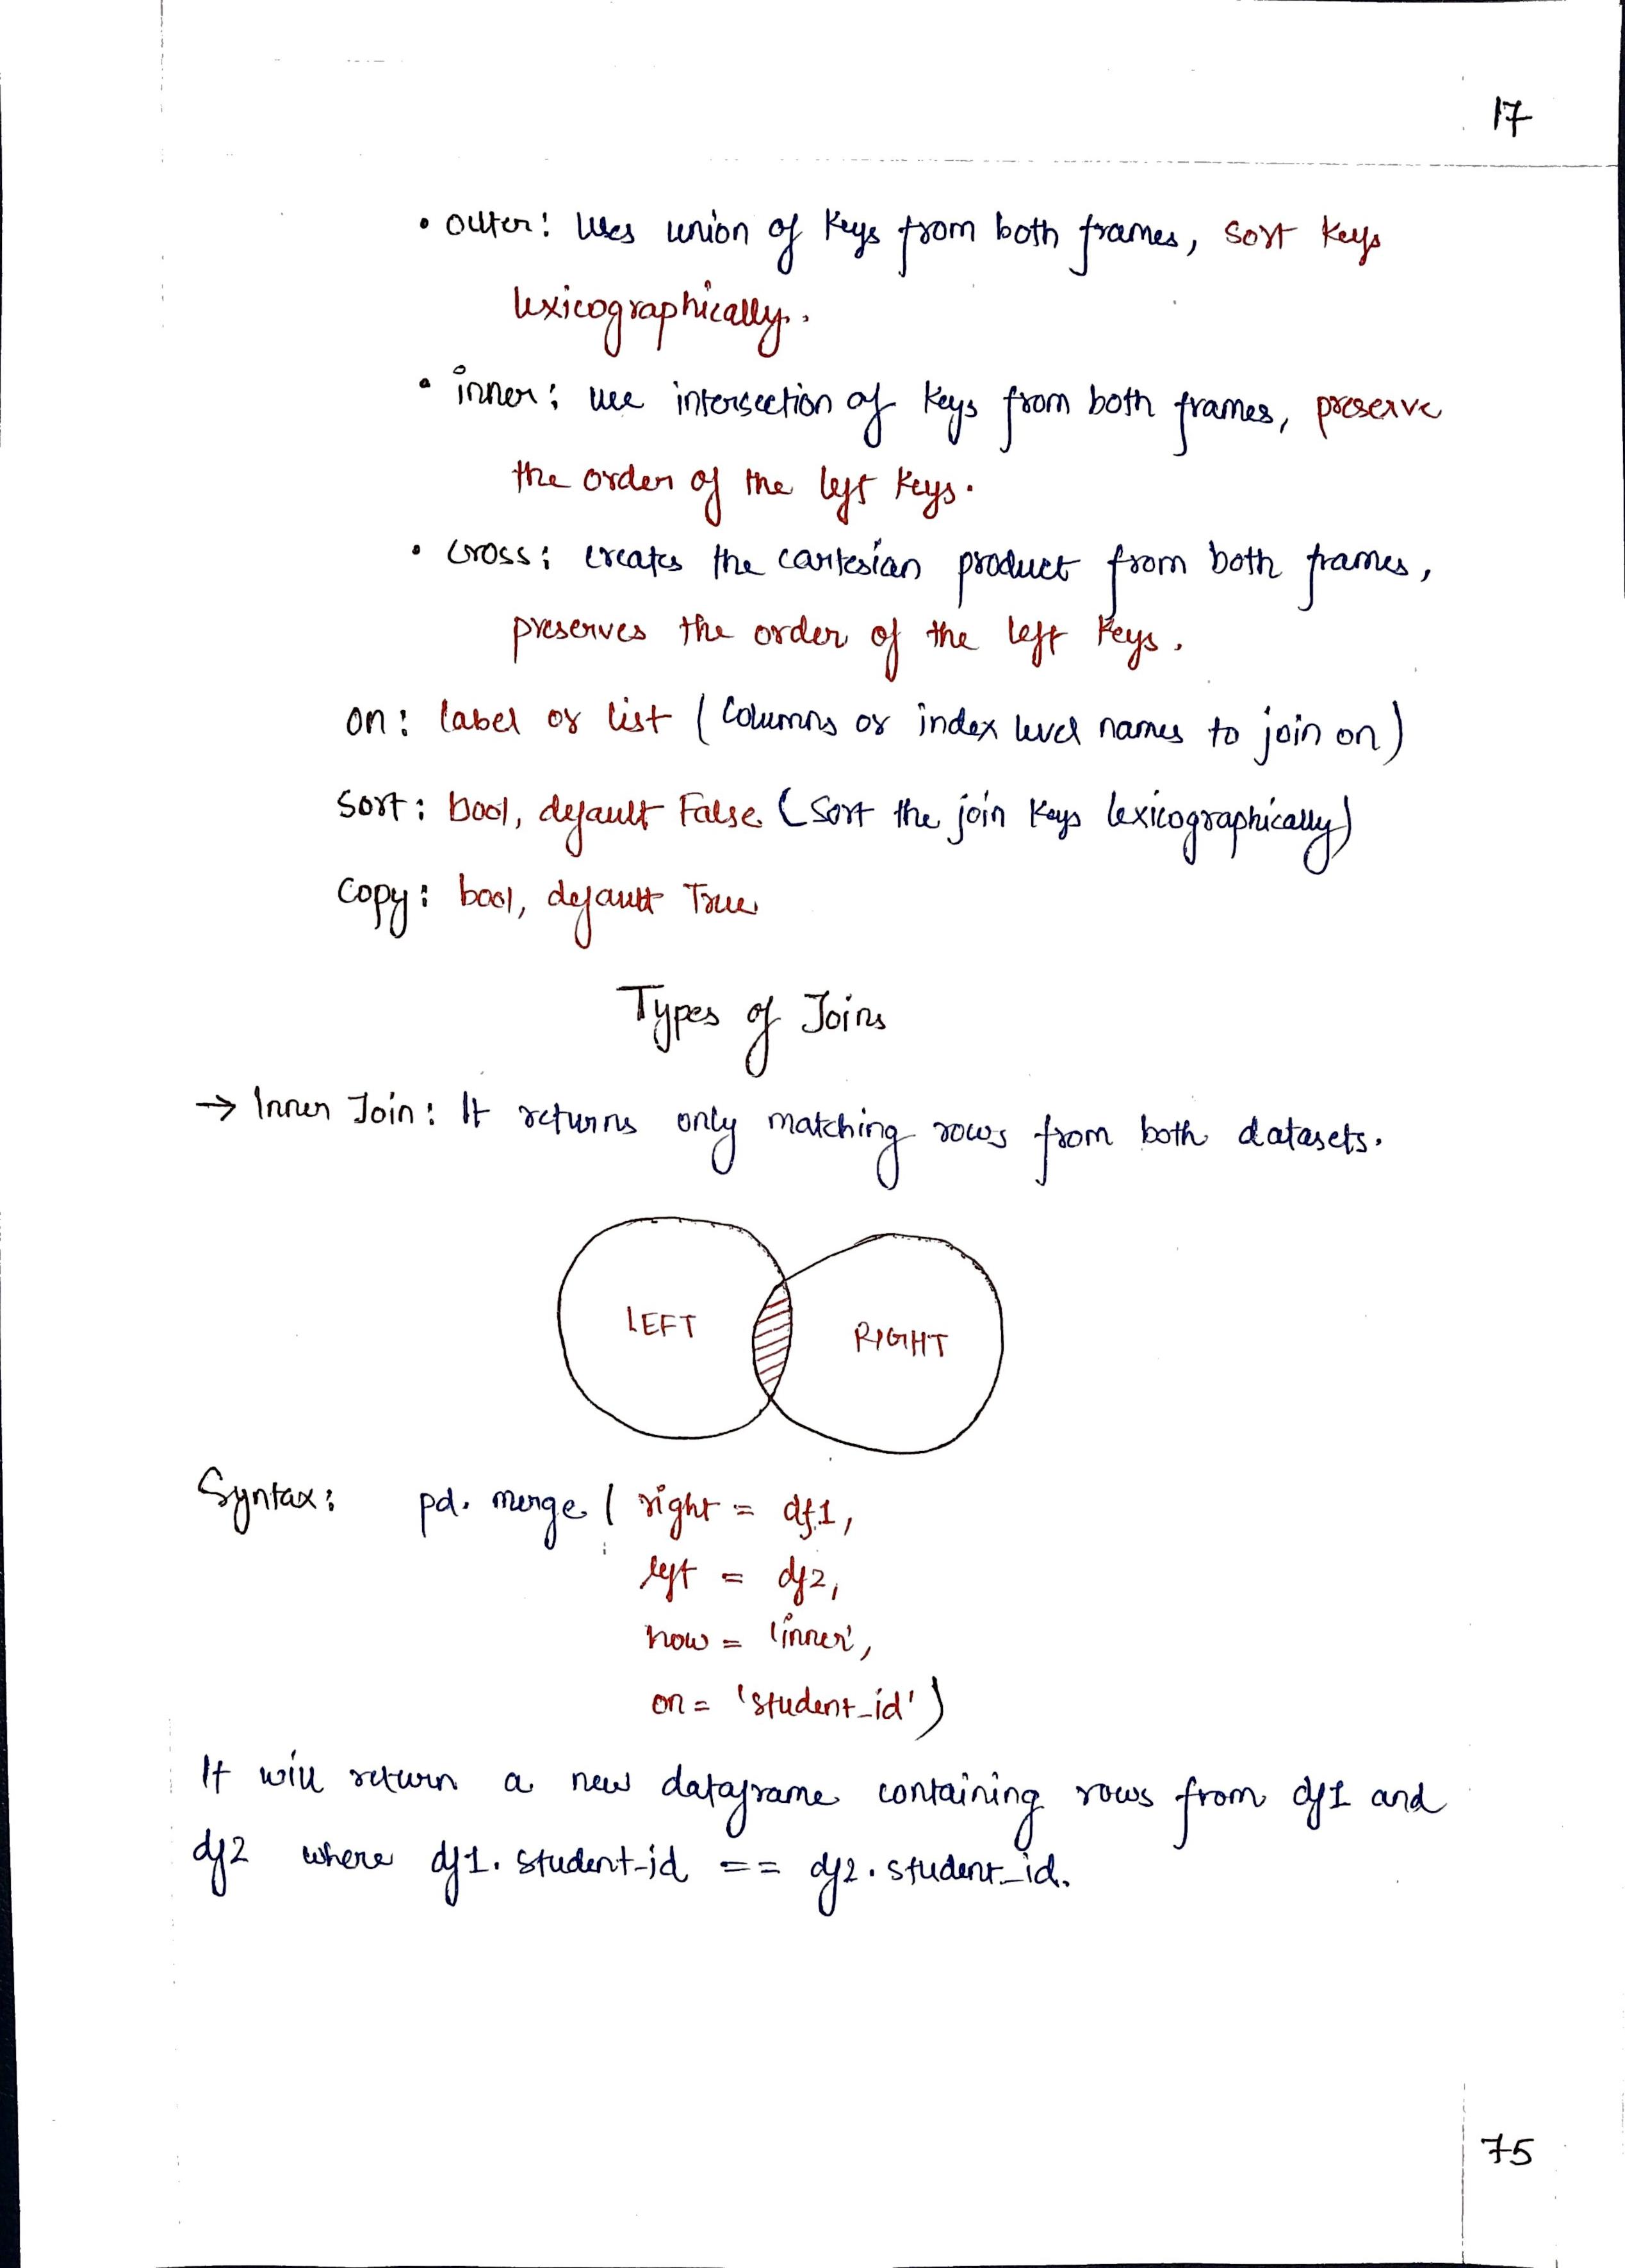 17
• outer: Uses union of keys from both frames, sort keys
lexicographically.
• inner: use intersection of keys from both frames, preserve
the order of the left keys.
• cross: creates the cartesian product from both frames,
preserves the order of the left keys.
on: label or list (columns or index level names to join on)
sort: bool, default False (sort the join keys lexicographically)
copy: bool, default True
Types of Joins
→ Inner Join: It returns only matching rows from both datasets.
LEFT
RIGHT
Syntax: pd.merge( right = df1,
left = df2,
how = 'inner',
on = 'student_id')
It will return a new dataframe containing rows from df1 and
df2 where df1.student_id == df2.student_id.
75